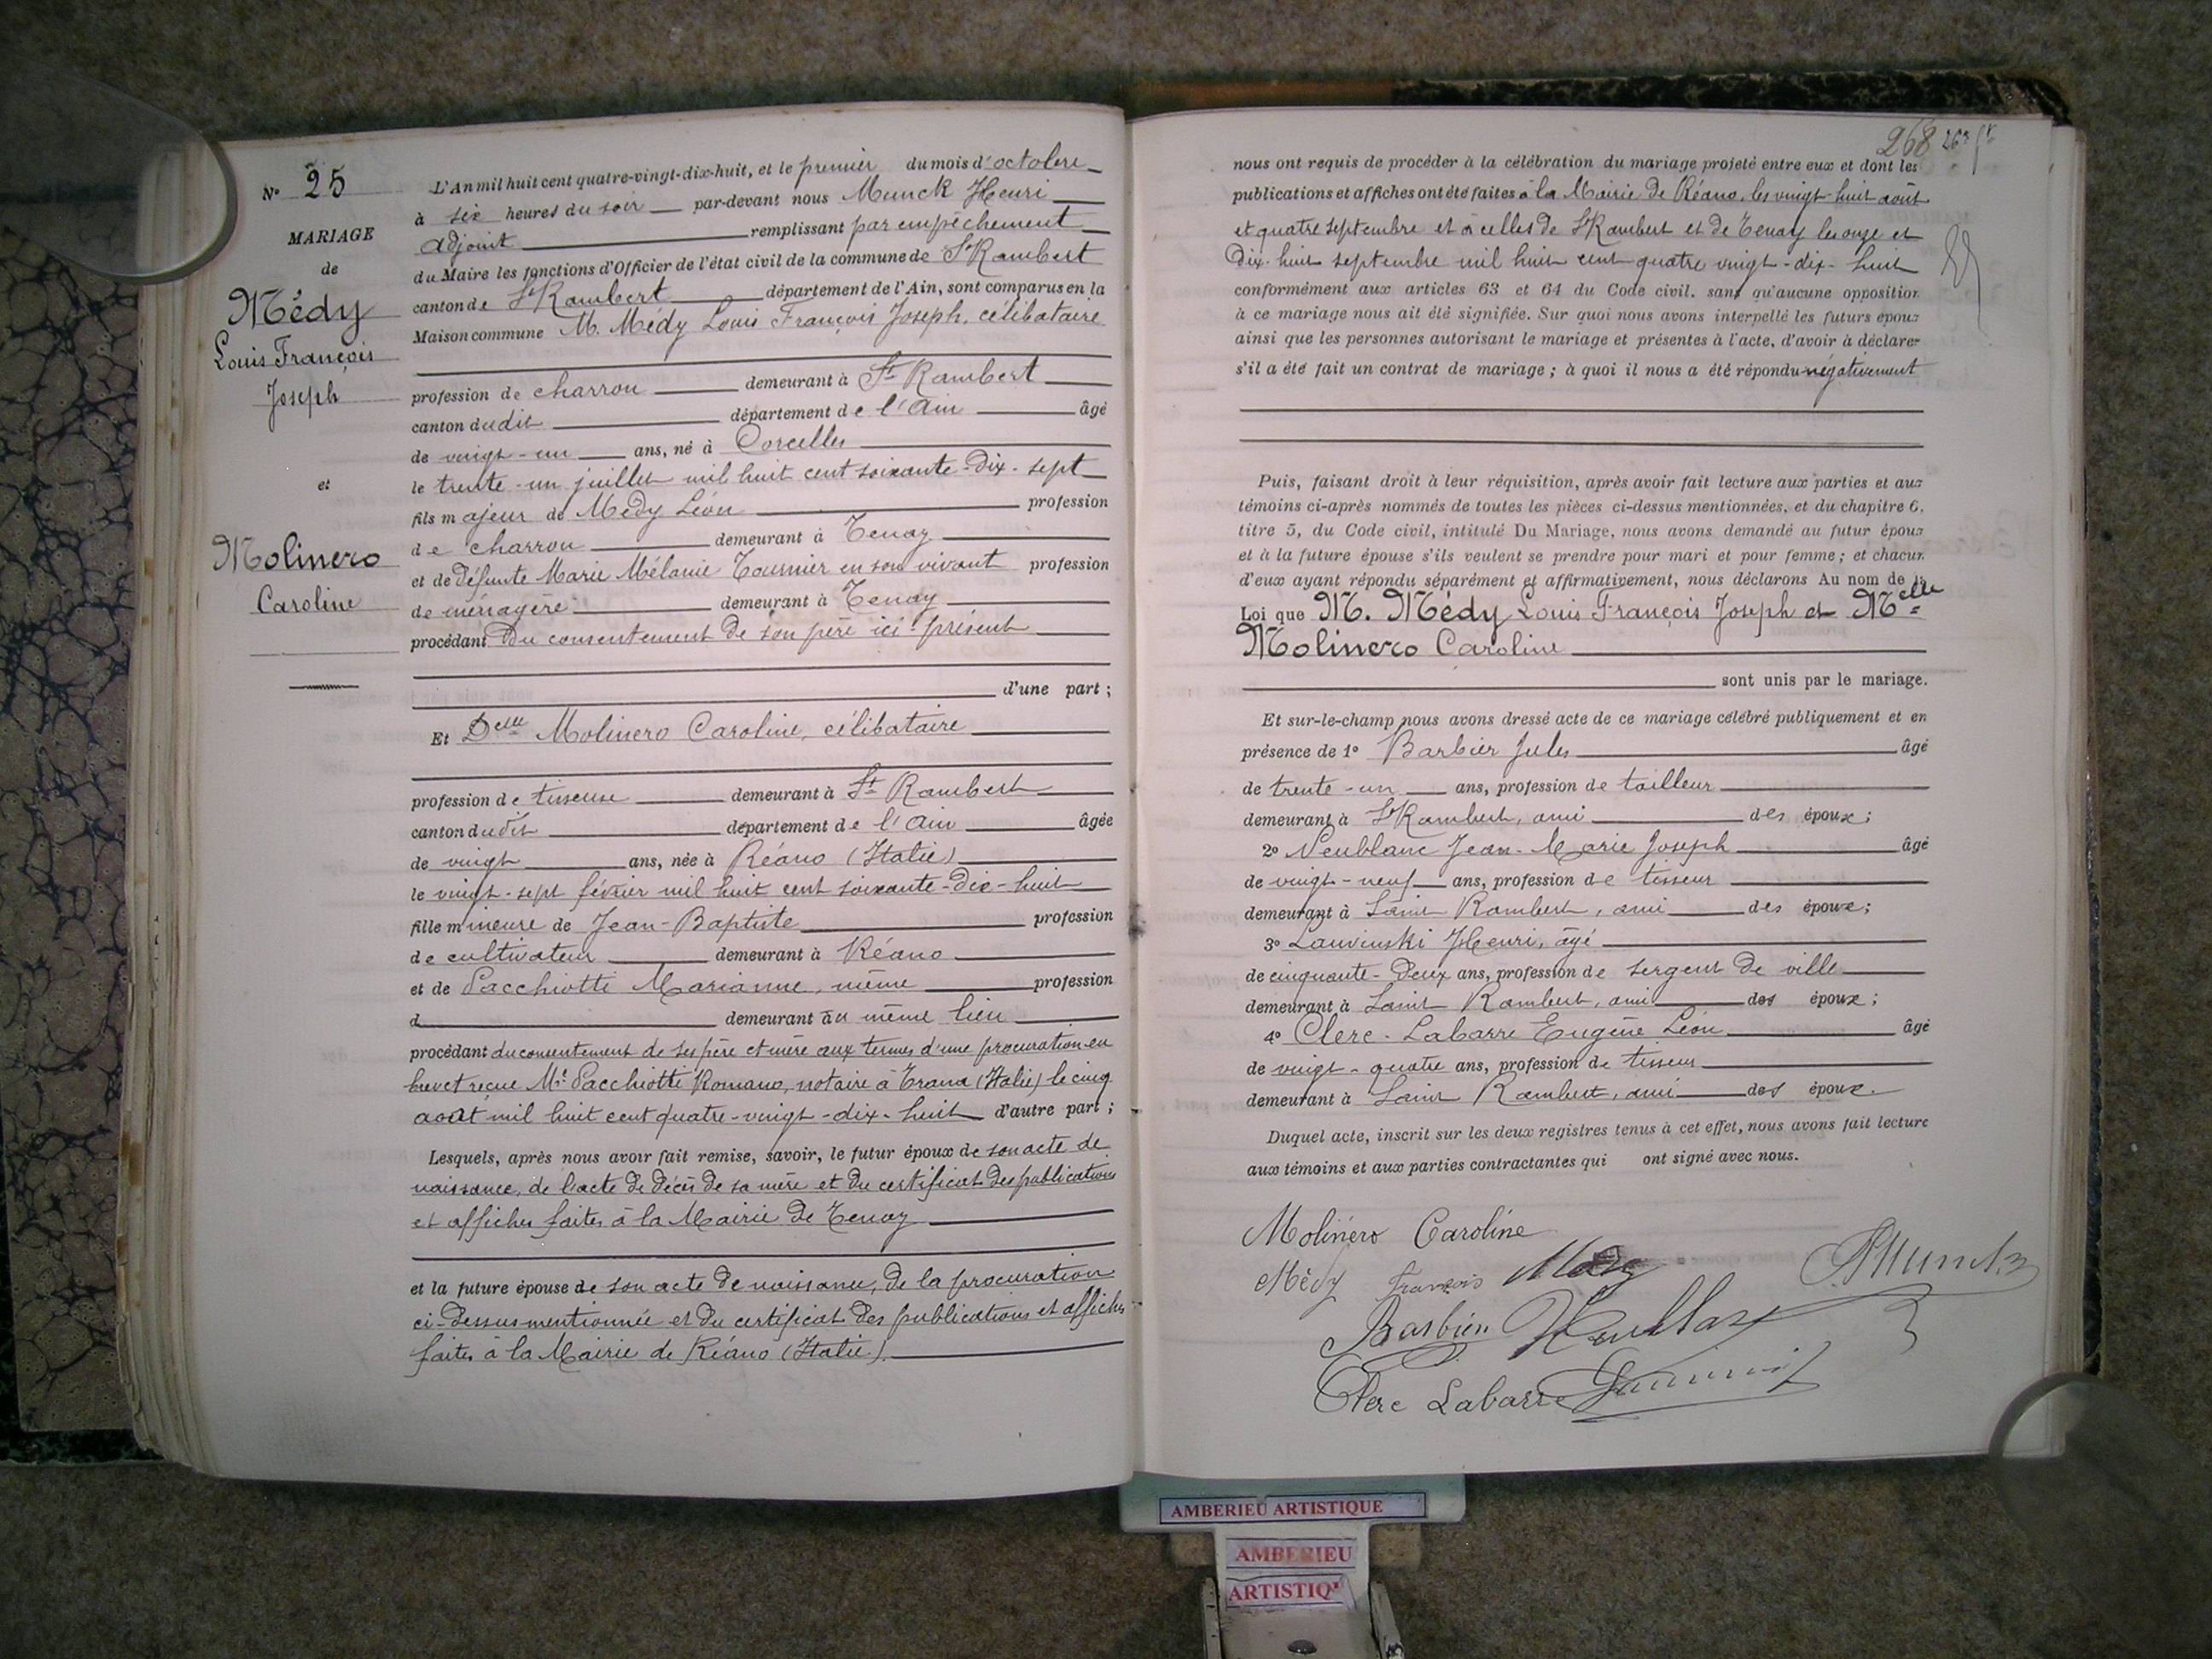 N° 25
MARIAGE
de
Médy
Louis François
Joseph
et
Molinero
Caroline
L'An mil huit cent quatre-vingt-dix-huit, et le premier du mois d'octobre
à six heures du soir par-devant nous Munck Henri
adjoint remplissant par empêchement
du Maire les fonctions d'Officier de l'état civil de la commune de St Rambert
canton de St Rambert département de l'Ain, sont comparus en la
Maison commune M. Médy Louis François Joseph, célibataire
profession de charron demeurant à St Rambert
canton dudit département de l'Ain âgé
de vingt-un ans, né à Corcelles
le trente-un juillet mil huit cent soixante-dix-sept
fils majeur de Médy Léon profession
de charron demeurant à Tenay
et de défunte Marie Mélanie Tournier en son vivant profession
de ménagère demeurant à Tenay
procédant du consentement de son père ici-présent
d'une part ;
Et Delle Molinero Caroline, célibataire
profession de tisseuse demeurant à St Rambert
canton dudit département de l'Ain âgée
de vingt ans, née à Réano (Italie)
le vingt-sept février mil huit cent soixante-dix-huit
fille mineure de Jean-Baptiste profession
de cultivateur demeurant à Réano
et de Pacchiotti Marianne, même profession
d demeurant au même lieu
procédant du consentement de ses père et mère aux termes d'une procuration en
brevet reçue Me Pacchiotti Romano, notaire à Trana (Italie) le cinq
août mil huit cent quatre-vingt-dix-huit d'autre part ;
Lesquels, après nous avoir fait remise, savoir, le futur époux de son acte de
naissance, de l'acte de décès de sa mère et du certificat des publications
et affiches faites à la Mairie de Tenay
et la future épouse de son acte de naissance, de la procuration
ci-dessus mentionnée et du certificat des publications et affiches
faites à la Mairie de Réano (Italie).
268
nous ont requis de procéder à la célébration du mariage projeté entre eux et dont les
publications et affiches ont été faites à la Mairie de Réano, les vingt-huit août
et quatre septembre et à celles de St Rambert et de Tenay les onze et
dix-huit septembre mil huit cent quatre vingt-dix-huit
conformément aux articles 63 et 64 du Code civil. sans qu'aucune opposition
à ce mariage nous ait été signifiée. Sur quoi nous avons interpellé les futurs époux
ainsi que les personnes autorisant le mariage et présentes à l'acte, d'avoir à déclarer
s'il a été fait un contrat de mariage ; à quoi il nous a été répondu négativement
Puis, faisant droit à leur réquisition, après avoir fait lecture aux parties et aux
témoins ci-après nommés de toutes les pièces ci-dessus mentionnées, et du chapitre 6,
titre 5, du Code civil, intitulé Du Mariage, nous avons demandé au futur époux
et à la future épouse s'ils veulent se prendre pour mari et pour femme ; et chacun
d'eux ayant répondu séparément et affirmativement, nous déclarons Au nom de la
Loi que M. Médy Louis François Joseph et Melle
Molinero Caroline
sont unis par le mariage.
Et sur-le-champ nous avons dressé acte de ce mariage célébré publiquement et en
présence de 1° Barbier Jules âgé
de trente-un ans, profession de tailleur
demeurant à St Rambert, ami des époux ;
2° Neublanc Jean-Marie Joseph âgé
de vingt-neuf ans, profession de tisseur
demeurant à Saint Rambert, ami des époux ;
3° Lauvinski Henri, âgé
de cinquante-deux ans, profession de sergent de ville
demeurant à Saint Rambert, ami des époux ;
4° Clerc-Labarre Eugène Léon âgé
de vingt-quatre ans, profession de tisseur
demeurant à Saint Rambert, ami des époux.
Duquel acte, inscrit sur les deux registres tenus à cet effet, nous avons fait lecture
aux témoins et aux parties contractantes qui ont signé avec nous.
Molinero Caroline
Médy François Médy
Barbier
Clerc Labarre
AMBERIEU ARTISTIQUE
AMBERIEU
ARTISTIQ